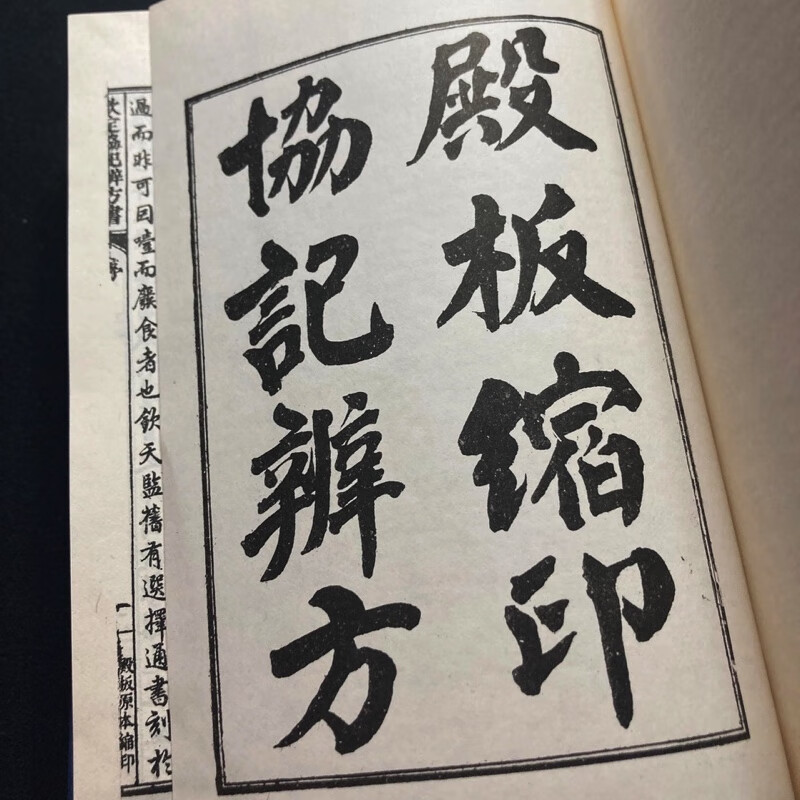 殿板縮印
協記辨方
過而昨可因噎而廢食者也欽天監舊有選擇通書刻於
欽定協紀辨方書
序
一
殿板原本縮印